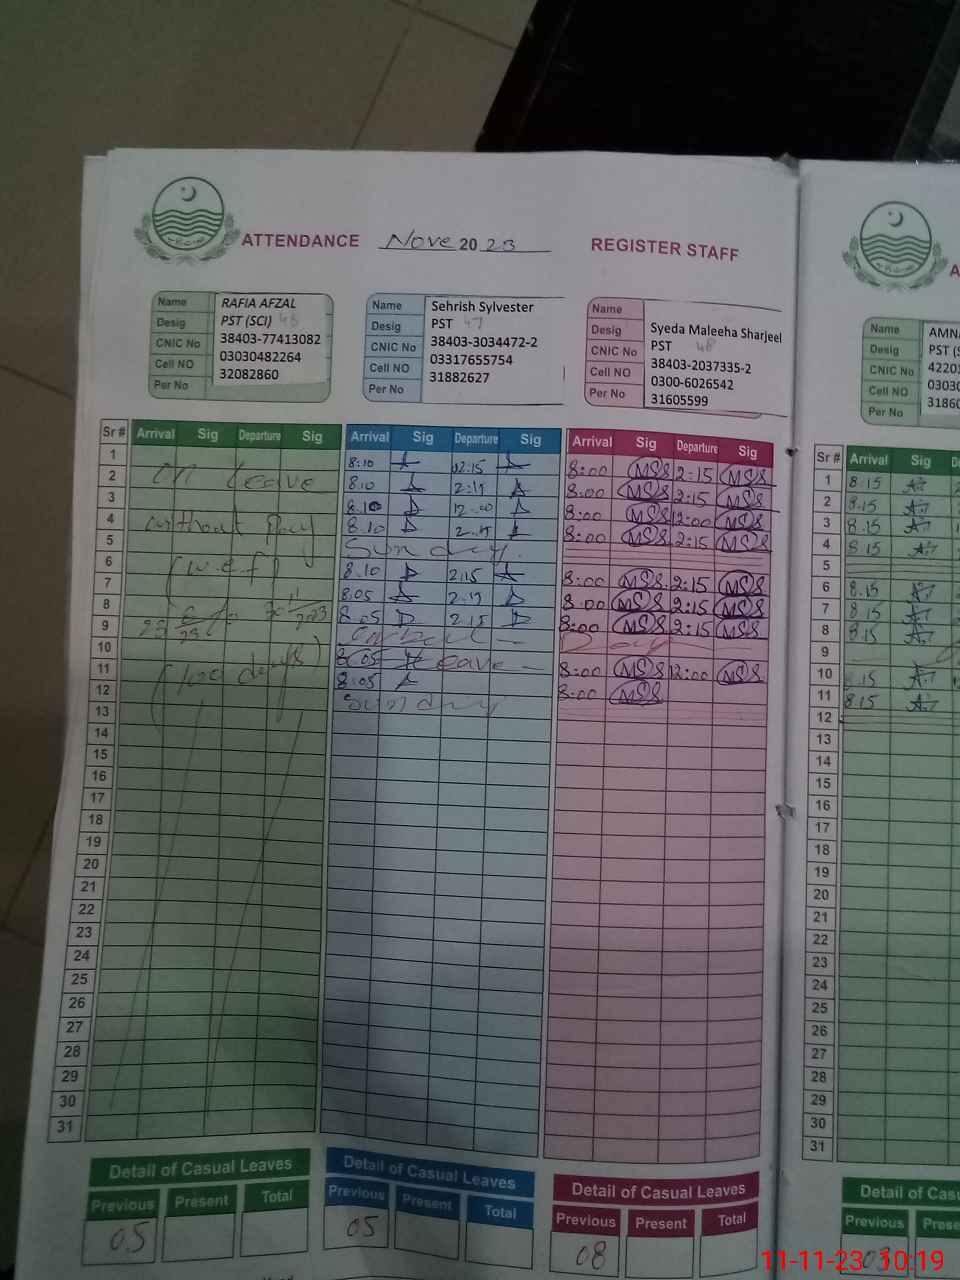 ATTENDANCE Nove 20 23 REGISTER STAFF
A
Name RAFIA AFZAL
Desig PST (SCI) 45
CNIC No 38403-77413082
Cell NO 03030482264
Per No 32082860
Name Sehrish Sylvester
Desig PST 47
CNIC No 38403-3034472-2
Cell NO 03317655754
Per No 31882627
Name
Desig Syeda Maleeha Sharjeel
CNIC No PST 48
Cell NO 38403-2037335-2
Per No 0300-6026542
31605599
Name AMN
Desig PST (S
CNIC No 42201
Cell NO 0303
Per No 3186
Sr # Arrival Sig Departure Sig
1
2
3
4
5
6
7
8
9
10
11
12
13
14
15
16
17
18
19
20
21
22
23
24
25
26
27
28
29
30
31
on leave
without pay
(w.e.f)
(100 days)
Arrival Sig Departure Sig
8:10 12.15
8.10 2:15
8.10 12.00
8.10 2.15
Sunday
8.10 2:15
8.05 2:15
8.05 2.15
8.05 Leave
8:05
Sunday
Arrival Sig Departure Sig
8:00 MSS 2:15 MSS
8:00 MSS 2:15 MSS
8:00 MSS 12:00 MSS
8:00 MSS 2:15 MSS
8:00 MSS 2:15 MSS
8:00 MSS 2:15 MSS
8:00 MSS 2:15 MSS
8:00 MSS 12:00 MSS
8:00 MSS
Sr # Arrival Sig De
1 8.15
2 8.15
3 8.15
4 8.15
5
6 8.15
7 8.15
8 8.15
9
10 .15
11 8.15
12
13
14
15
16
17
18
19
20
21
22
23
24
25
26
27
28
29
30
31
Detail of Casual Leaves
Previous Present Total
05
Detail of Casual Leaves
Previous Present Total
05
Detail of Casual Leaves
Previous Present Total
08
Detail of Casu
Previous Prese
03
11-11-23 10:19